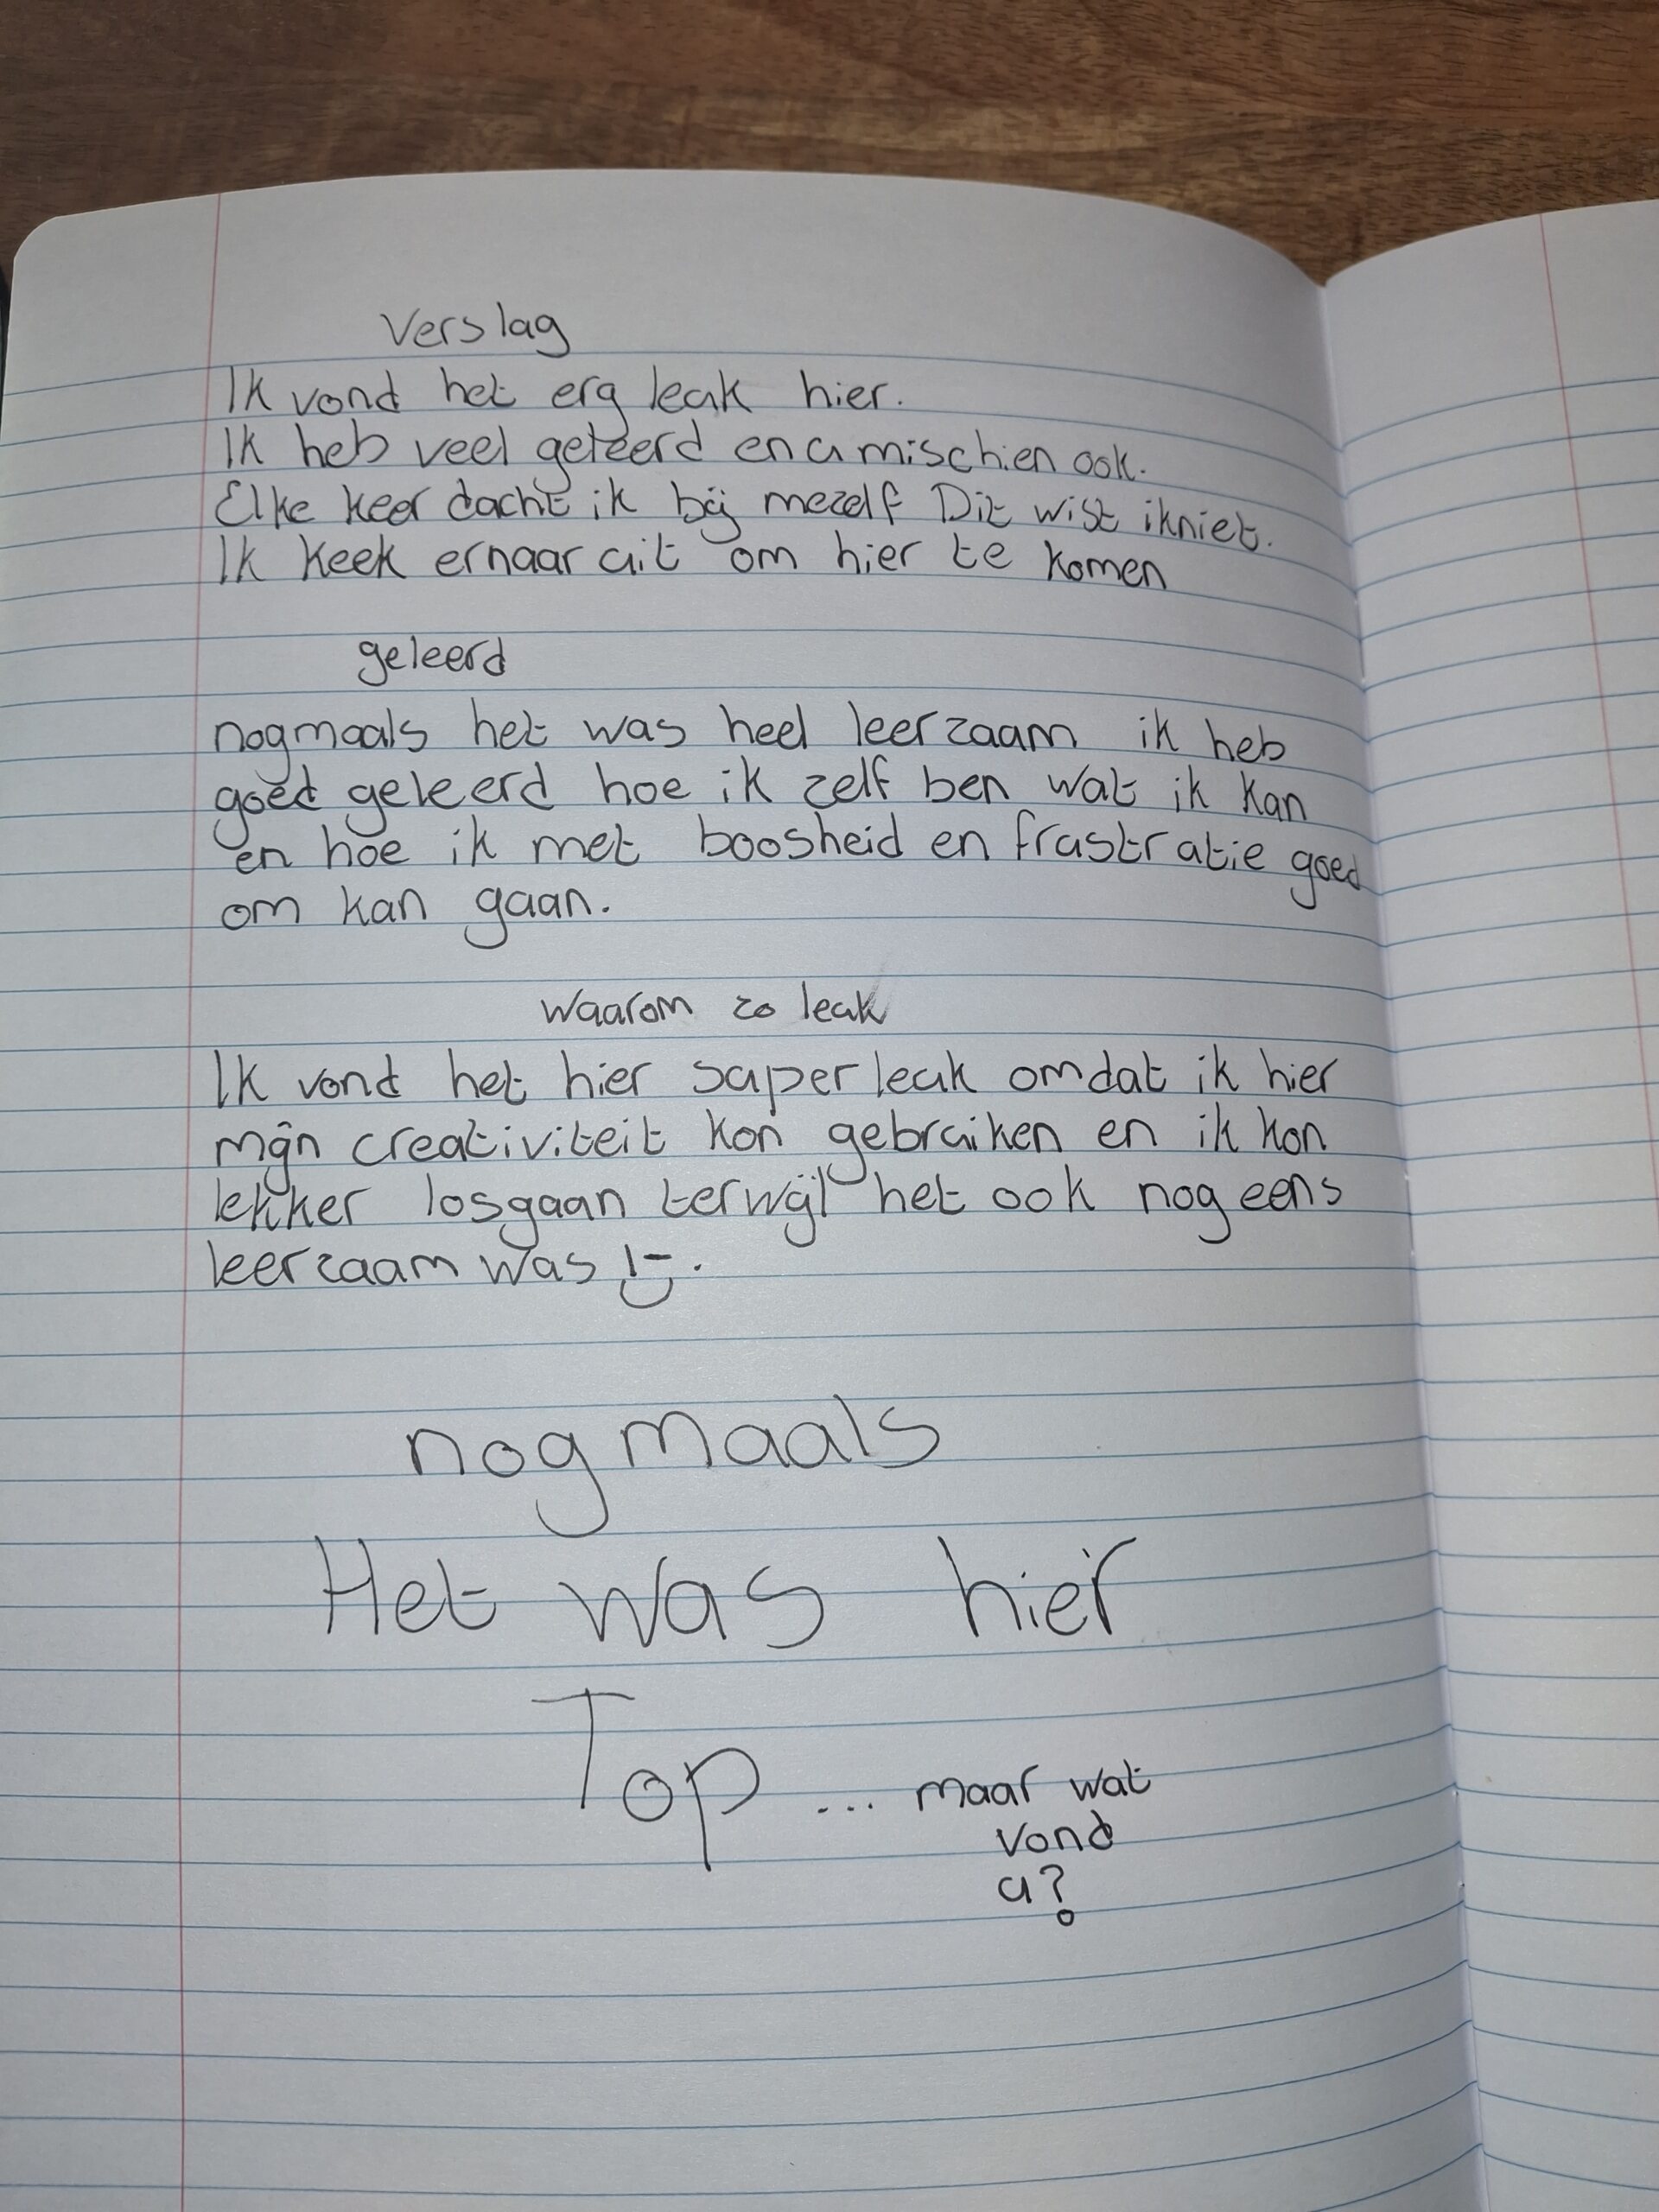 Verslag
Ik vond het erg leuk hier.
Ik heb veel geleerd en u mischien ook.
Elke keer dacht ik bij mezelf Dit wist ik niet.
Ik keek ernaar uit om hier te komen
geleerd
nogmaals het was heel leerzaam ik heb
goed geleerd hoe ik zelf ben wat ik kan
en hoe ik met boosheid en frustratie goed
om kan gaan.
waarom zo leuk
Ik vond het hier super leuk omdat ik hier
mijn creativiteit kon gebruiken en ik kon
lekker losgaan terwijl het ook nog eens
leerzaam was !-).
nogmaals
Het was hier
Top ... maar wat
vond
u?